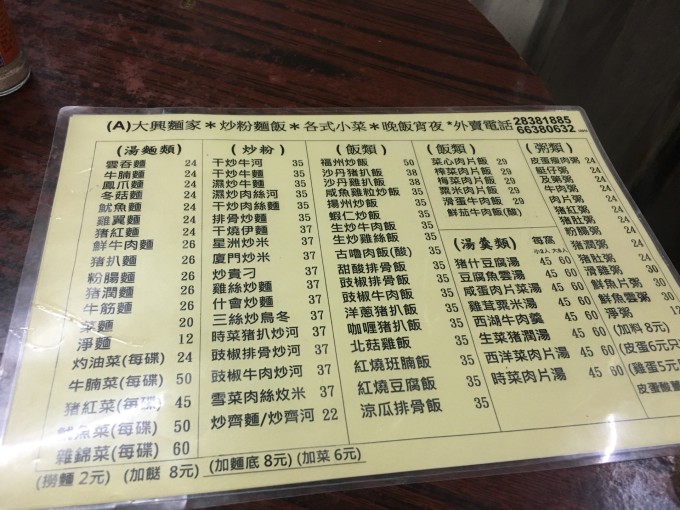 (A)大興麵家＊炒粉麵飯＊各式小菜＊晚飯宵夜*外賣電話 28381885
66380632
(湯麵類)
雲吞麵 24
牛腩麵 24
鳳爪麵 24
冬菇麵 24
魷魚麵 24
雞翼麵 24
豬紅麵 24
鮮牛肉麵 26
豬扒麵 26
粉腸麵 26
猪潤麵 26
牛筋麵 26
菜麵 20
淨麵 12
灼油菜(每碟) 24
牛腩菜(每碟) 50
猪紅菜(每碟) 45
魷魚菜(每碟) 50
雜錦菜(每碟) 60
(炒粉)
干炒牛河 35
干炒牛麵 35
濕炒牛河 35
濕炒肉絲河 35
干炒肉絲麵 35
排骨炒麵 37
干燒伊麵 37
星洲炒米 37
廈門炒米 37
炒貴刁 37
雞絲炒麵 37
什會炒麵 37
三絲炒烏冬 37
時菜豬扒炒河 37
豉椒排骨炒河 37
豉椒牛肉炒河 37
雪菜肉絲炆米 37
炒齊麵/炒齊河 22
(飯類)
福州炒飯 50
沙丹豬扒飯 38
沙丹雞扒飯 38
咸魚雞粒炒飯 35
揚州炒飯 35
蝦仁炒飯 35
生炒牛肉飯 35
生炒雞絲飯 35
古嚕肉飯(酸) 35
甜酸排骨飯 35
豉椒排骨飯 35
豉椒牛肉飯 35
洋蔥豬扒飯 35
咖喱豬扒飯 35
北菇雞飯 35
紅燒班腩飯 35
紅燒豆腐飯 35
涼瓜排骨飯 35
(飯類)
菜心肉片飯 29
榨菜肉片飯 29
梅菜肉片飯 29
粟米肉片飯 29
滑蛋牛肉飯 29
鮮茄牛肉飯(酸)
(湯羹類) 每窩
豬什豆腐湯 45 60
豆腐魚雲湯 45 60
咸蛋肉片菜湯 45 60
雞茸粟米湯 45 60
西湖牛肉羹 45 60
生菜猪潤湯 45 60
西洋菜肉片湯 45 60
時菜肉片湯 45 60
(粥類)
皮蛋瘦肉粥 24
艇仔粥 24
及第粥 24
牛肉粥 24
肉片粥 24
猪紅粥 24
猪肚粥 24
粉腸粥 24
猪潤粥 24
滑雞粥 30
鮮魚片粥 30
鮮魚雲粥 30
淨粥 12
(加料 8元)
(皮蛋 6元只
(雞蛋 5元
(撈麵 2元) (加餸 8元) (加麵底 8元) (加菜 6元)